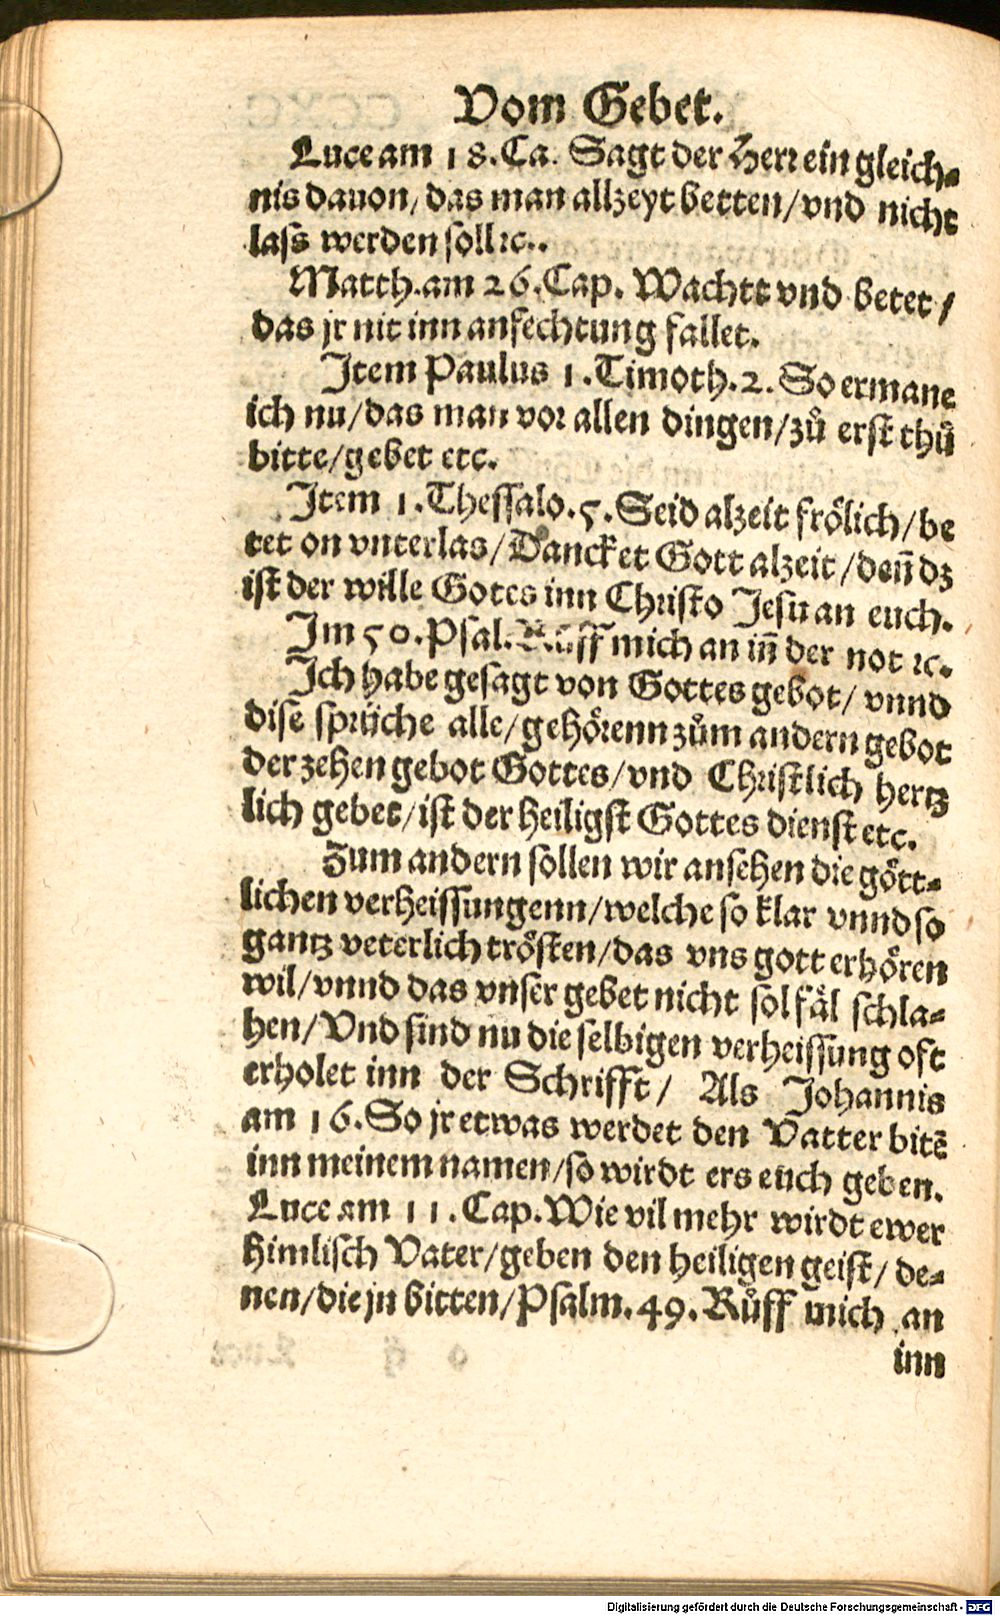 Vom Gebet.
Luce am 18. Ca. Sagt der Herr ein gleich⸗
nis dauon/ das man allzeyt betten/ vnd nicht
lass werden soll ꝛc..
Matth. am 26. Cap. Wachtt vnd betet/
das jr nit inn anfechtung fallet.
Item Paulus 1. Timoth. 2. So ermane
ich nu/ das man vor allen dingen/ zů erst thů
bitte/ gebet etc.
Item 1. Thessalo. 5. Seid alzeit frölich/ be
tet on vnterlas/ Dancket Gott alzeit/ deñ dz
ist der wille Gotes inn Christo Jesu an euch.
Im 50. Psal. Růff mich an iñ der not ꝛc.
Ich habe gesagt von Gottes gebot/ vnnd
dise sprüche alle/ gehörenn zům andern gebot
der zehen gebot Gottes/ vnd Christlich hertz
lich gebet/ ist der heiligst Gottes dienst etc.
Zum andern sollen wir ansehen die gött⸗
lichen verheissungenn/ welche so klar vnnd so
gantz veterlich trösten/ das vns gott erhören
wil/ vnnd das vnser gebet nicht sol fäl schla⸗
hen/ Vnd sind nu die selbigen verheissung oft
erholet inn der Schrifft/ Als Johannis
am 16. So jr etwas werdet den Vatter bitē
inn meinem namen/ so wirdt ers euch geben.
Luce am 11. Cap. Wie vil mehr wirdt ewer
himlisch Vater/ geben den heiligen geist/ de⸗
nen/ die jn bitten/ Psalm. 49. Růff mich an
inn
Digitalisierung gefördert durch die Deutsche Forschungsgemeinschaft - DFG